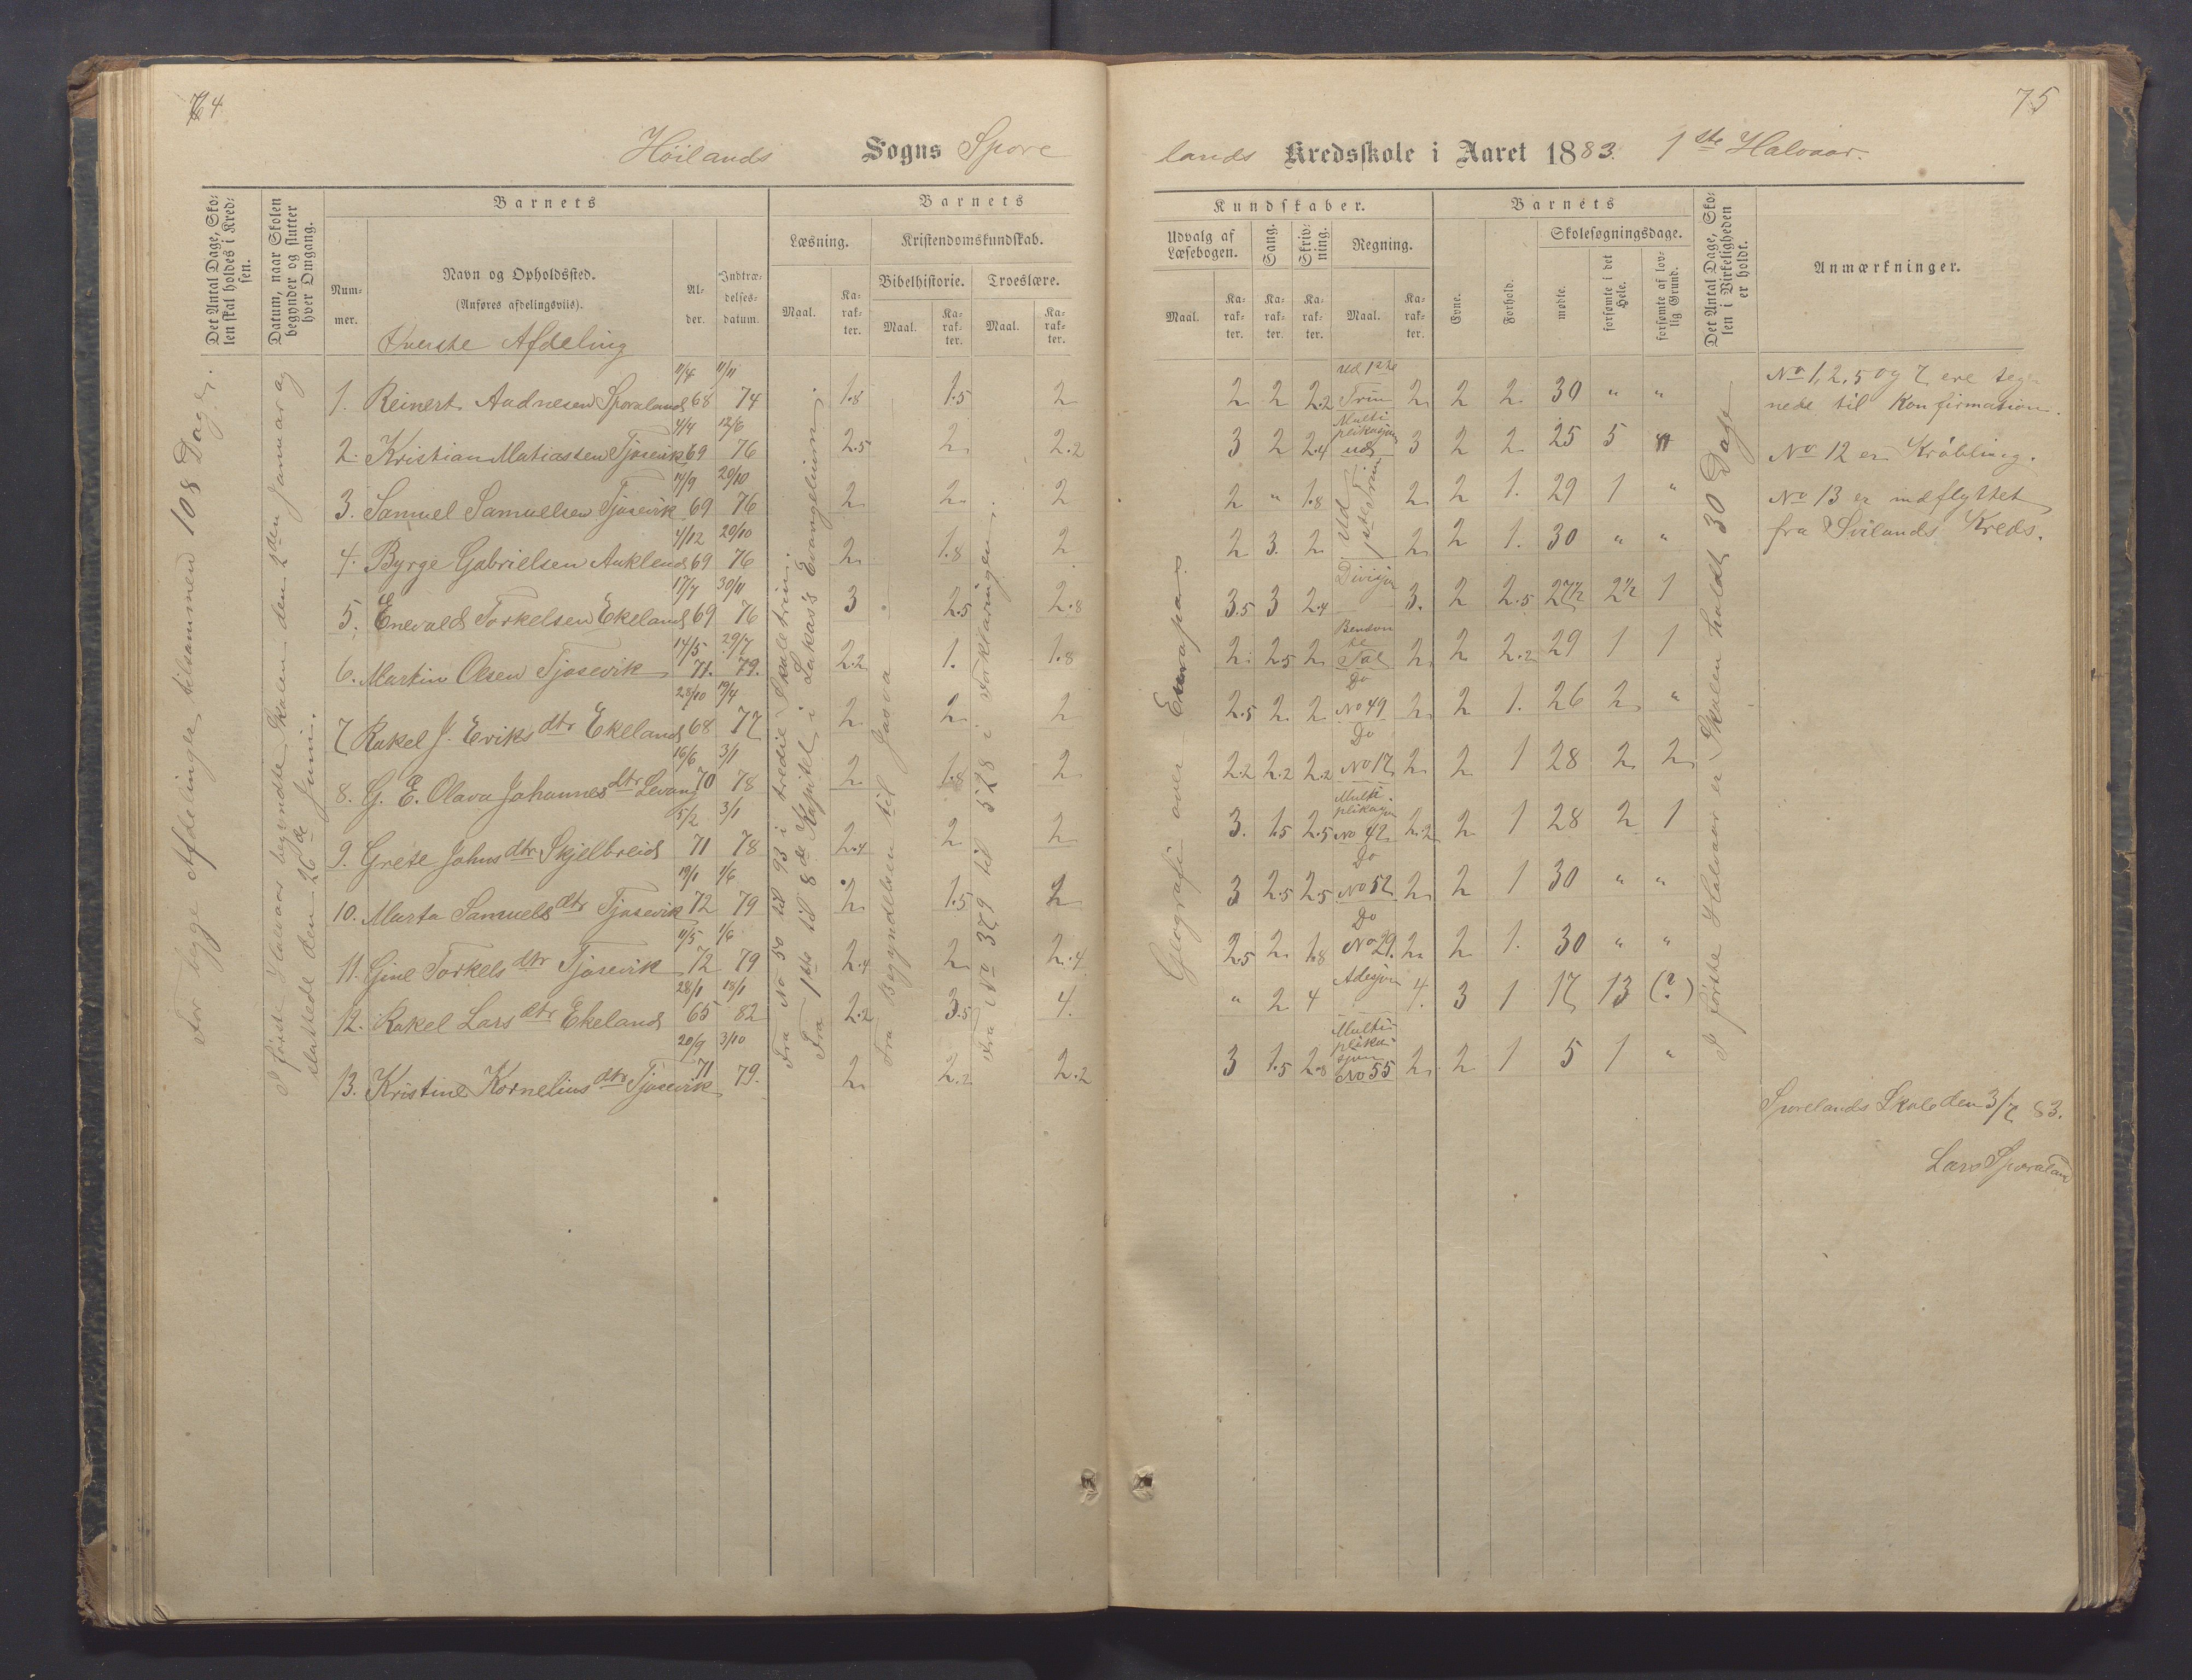 74
75
Høilands Sogns Spore
lands Kredsskole i Aaret 1883. 1ste Halvaar.
Det Antal Dage, Sko-
len skal holdes i Kred-
sen.
Datum, naar Skolen
begynder og slutter
hver Omgang.
Barnets
Num-
mer.
Navn og Opholdssted.
(Anføres afdelingsviis).
Øverste Afdeling
Al-
der.
Indtræ-
delses-
datum.
Barnets
Læsning.
Maal.
Ka-
rak-
ter.
Kristendomskundskab.
Bibelhistorie.
Maal.
Ka-
rak-
ter.
Troeslære.
Maal.
Ka-
rak-
ter.
Kundskaber.
Udvalg af
Læsebogen.
Maal.
Ka-
rak-
ter.
Sang.
Ka-
rak-
ter.
Skriv-
ning.
Ka-
rak-
ter.
Regning.
Maal.
Ka-
rak-
ter.
Barnets
Evne.
Forhold.
Skolesøgningsdage.
mødte.
forsømte i det
Hele.
forsømte af lov-
lig Grund.
Det Antal Dage, Sko-
len i Virkeligheden
er holdt.
Anmærkninger.
For begge Afdelinger tilsammen 108 Dage.
I første Halvaar begyndte Skolen den 2den Januar og
sluttede den 26de Juni.
Fra No 50 til 93 i tredie Skoletrin.
Fra 1ste til 8de Kapitel i Lukas's Evangelium.
Fra Begyndelsen til Josva
Fra No 379 til 528 i Forklaringen.
Geografi over Europa.
I første Halvaar er Skolen holdt 30 Dage
1. Reinert Aadnesen Sporaland 11/4 68 11/11 74 1.8 1.5 2 2 2 2.2 ud 1ste Trin 2 2 2 30 " "
2. Kristian Matiassen Tjosevik 4/4 69 12/6 76 2.5 2 2.2 3 2 2.4 Multiplikasjon ud 3 2 2 25 5
3. Samuel Samuelsen Tjosevik 14/9 69 20/10 76 2 2 2 2 " 1.8 Ud 1ste Trin 2 2 1. 29 1 "
4. Byrge Gabrielsen Auklend 4/12 69 20/10 76 2 1.8 2 2 3. 2 2 2 1. 30 " "
5. Enevald Torkelsen Ekeland 17/7 69 30/11 76 3 2.5 2.8 3.5 3 2.4 Divisjon 3. 2 2.5 27½ 2½ 1
6. Martin Olsen Tjosevik 14/5 71. 29/7 79. 2.2 1. 1.8 2. 2.5 2 Benævnte Tal 2 2 2.2 29 1 1
7 Rakel J. Eriksdtr Ekeland 28/10 68 19/4 77 2 2 2 2.5 2 2 Do No 49 2 2 1. 26 2 "
8. G. E. Olava Johannesdtr Levang 16/6 70 3/1 78 2 1.8 2 2.2 2.2 2.2 Do No 17 2 2 1 28 2 2
9. Grete Johnsdtr Skjelbreid 5/2 71 3/1 78 2.4 2 2 3. 1.5 2.5 Multiplikasjon No 42 2.2 2 1 28 2 1
10. Marta Samuelsdtr Tjosevik 19/1 72 1/6 79 2 1.5 2 3 2.5 2.5 Do No 52 2 2 1 30 " "
11. Gine Torkelsdtr Tjosevik 11/5 72 1/6 79 2.4 2 2.4 2.5 2 1.8 Do No 29. 2 2 1. 30 " "
12. Rakel Larsdtr Ekeland 28/1 65 18/1 82 2.2 3.5 4. " 2 4 Adisjon 4. 3 1 17 13 (?)
13. Kristine Korneliusdtr Tjosevik 20/9 71 3/10 79. 2 2.2 2.2 3 1.5 2.8 Multiplikasjon No 55 2 2 1 5 1 "
No 1, 2, 5 og 7 ere teg-
nede til Konfirmation.
No 12 er Krøbling.
No 13 er indflyttet
fra Svilands Kreds.
Sporelands Skole den 3/7 83.
Lars Sporaland